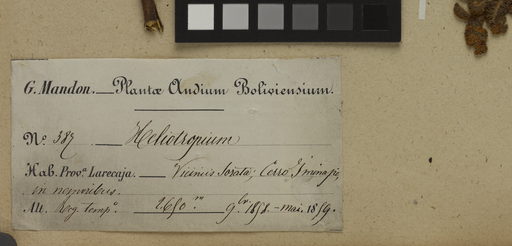 G. Mandon. — Plantæ Andium Boliviensium.
Nº 387 — Heliotropium
Hab. Prov.ª Larecaja. — Viciniis Sorata; Cerro
in nemoribus.
Alt. Reg. temp.ª 2650 m 9br. 1858 - mai. 1859.